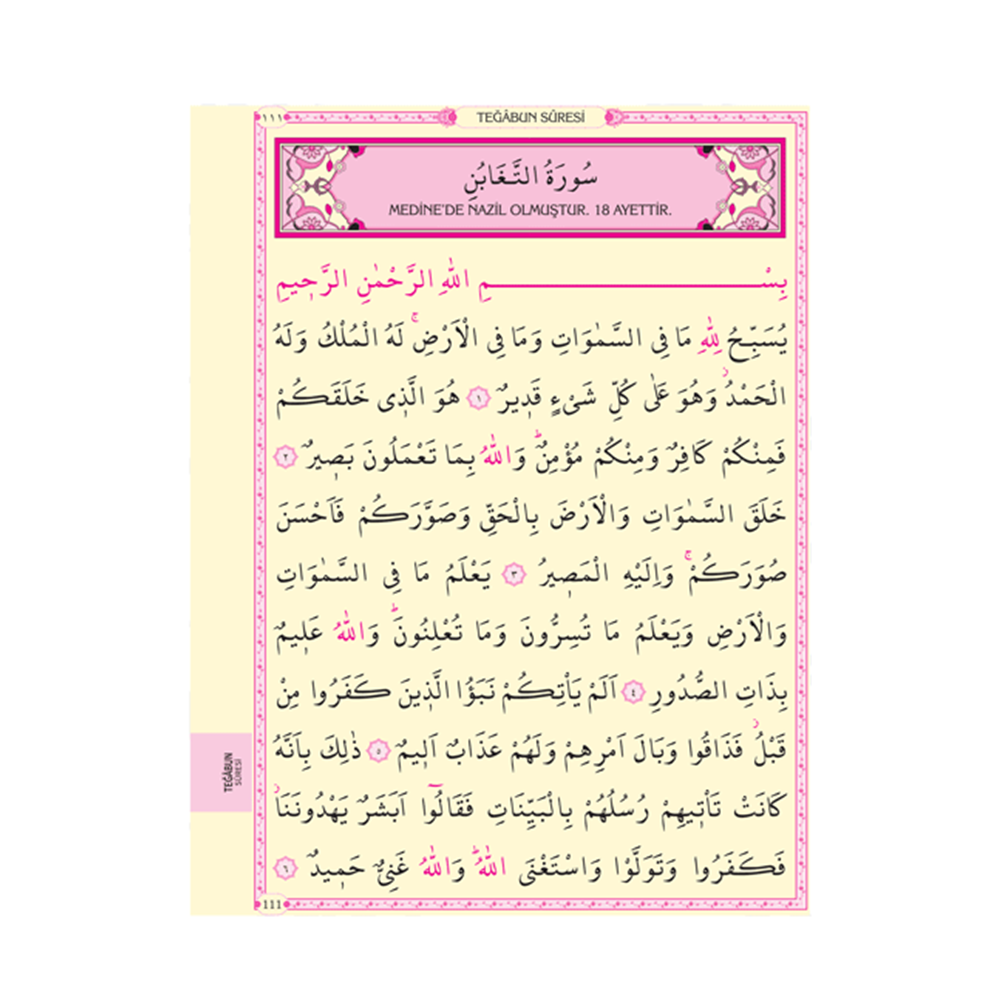 ١١١
TEĞÂBUN SÛRESİ
سُورَةُ التَّغَابُنِ
MEDİNE'DE NAZİL OLMUŞTUR. 18 AYETTİR.
بِسْمِ اللّٰهِ الرَّحْمٰنِ الرَّح۪يمِ
يُسَبِّحُ لِلّٰهِ مَا فِي السَّمٰوَاتِ وَمَا فِي الْاَرْضِۚ لَهُ الْمُلْكُ وَلَهُ
الْحَمْدُۘ وَهُوَ عَلٰى كُلِّ شَيْءٍ قَد۪يرٌ ﴿١﴾ هُوَ الَّذ۪ي خَلَقَكُمْ
فَمِنْكُمْ كَافِرٌ وَمِنْكُمْ مُؤْمِنٌۜ وَاللّٰهُ بِمَا تَعْمَلُونَ بَص۪يرٌ ﴿٢﴾
خَلَقَ السَّمٰوَاتِ وَالْاَرْضَ بِالْحَقِّ وَصَوَّرَكُمْ فَاَحْسَنَ
صُوَرَكُمْۚ وَاِلَيْهِ الْمَص۪يرُ ﴿٣﴾ يَعْلَمُ مَا فِي السَّمٰوَاتِ
وَالْاَرْضِ وَيَعْلَمُ مَا تُسِرُّونَ وَمَا تُعْلِنُونَۜ وَاللّٰهُ عَل۪يمٌ
بِذَاتِ الصُّدُورِ ﴿٤﴾ اَلَمْ يَأْتِكُمْ نَبَؤُا الَّذ۪ينَ كَفَرُوا مِنْ
قَبْلُۘ فَذَاقُوا وَبَالَ اَمْرِهِمْ وَلَهُمْ عَذَابٌ اَل۪يمٌ ﴿٥﴾ ذٰلِكَ بِاَنَّهُ
كَانَتْ تَأْت۪يهِمْ رُسُلُهُمْ بِالْبَيِّنَاتِ فَقَالُٓوا اَبَشَرٌ يَهْدُونَنَاۘ
فَكَفَرُوا وَتَوَلَّوْا وَاسْتَغْنَى اللّٰهُۜ وَاللّٰهُ غَنِيٌّ حَم۪يدٌ ﴿٦﴾
111
TEĞÂBUN
SÛRESİ